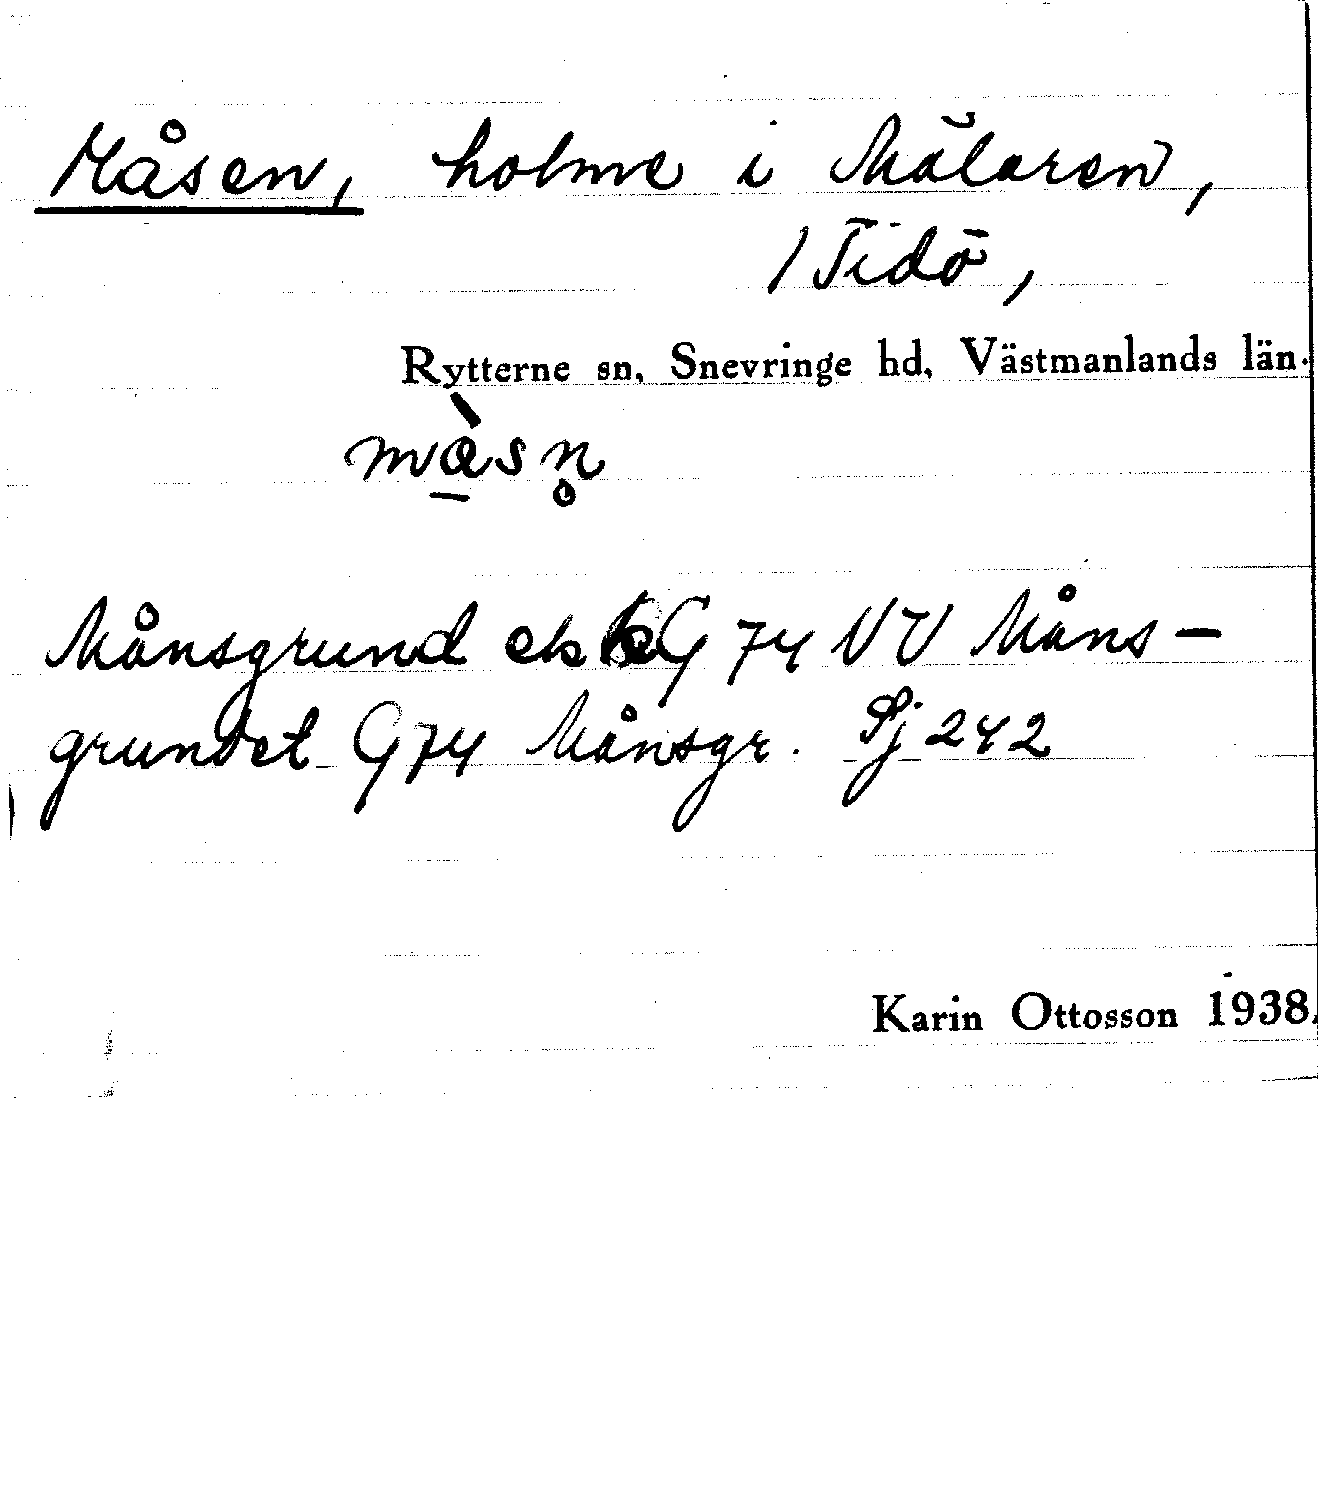 Måsen, holme i Mälaren,
/ Tidö,
Rytterne sn, Snevringe hd, Västmanlands län.
mὰ̱sn̥
Månsgrund ek G 74 NV Måns-
grundet G 74 Månsgr. Sj 242
Karin Ottosson 1938.